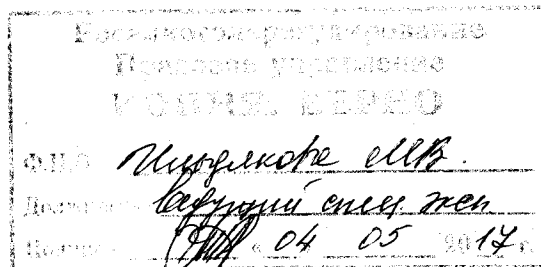 Правовое управление
КОПИЯ ВЕРНО
Ф.И.О. М.В.
Должность ведущий спец эксп
Подпись « 04 05 2017 г.